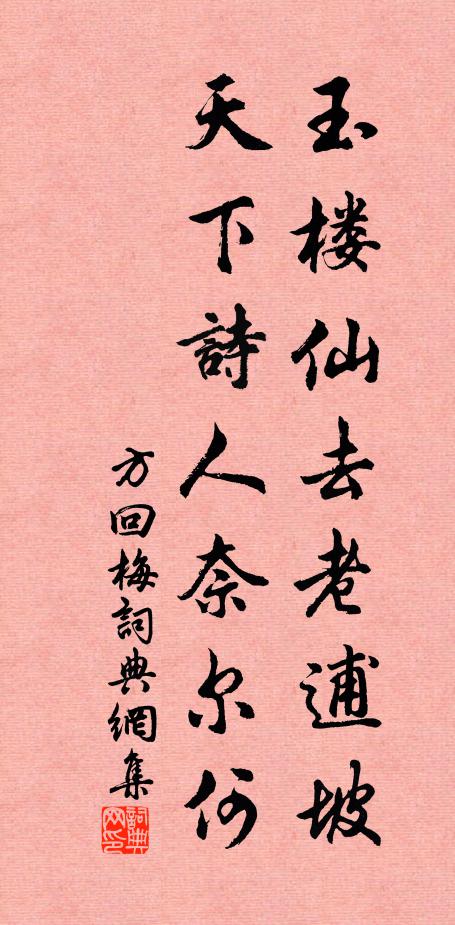 玉楼仙去老逋坡
天下詩人奈尔何
方回梅詞典網集
詞典网印